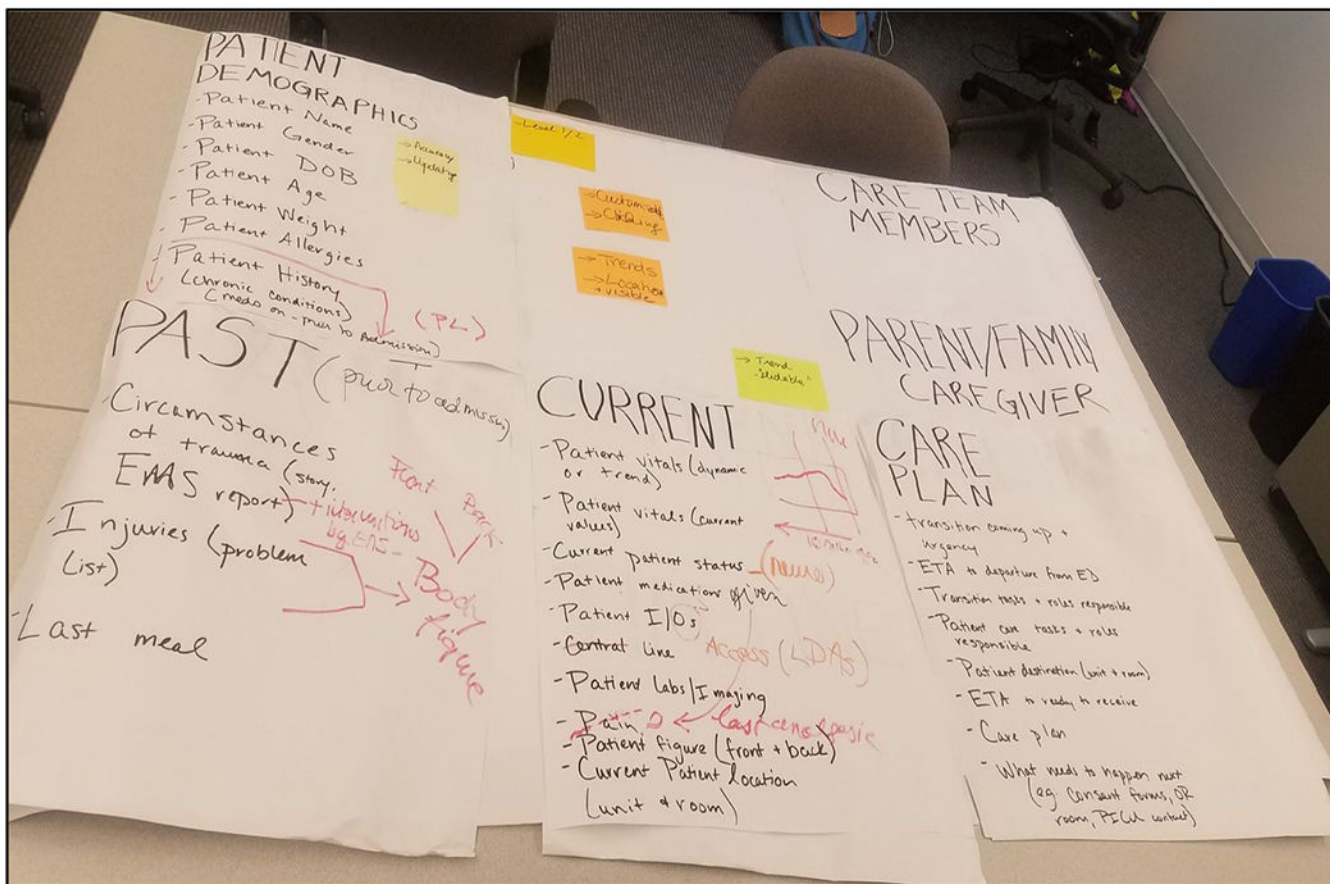 PATIENT
DEMOGRAPHICS
- Patient Name
- Patient Gender
- Patient DOB
- Patient Age
- Patient Weight
- Patient Allergies
- Patient History
(chronic conditions)
(meds on - prior to Admission)
(PL)
→ Accuracy
→ Updating
- Level 1/2
→ Customizable
→ Trends
→ Location
+ visible
→ Trend
"slidable"
CARE TEAM
MEMBERS
PARENT/FAMILY
CAREGIVER
PAST (prior to admission)
- Circumstances
of trauma (story,
EMS report)
+ interventions
by EMS -
- Injuries (problem
list)
- Last meal
Front Back
Body
figure
CURRENT
- Patient vitals (dynamic
or trend)
- Patient vitals (current
values)
- Current patient status
- Patient medications given
- Patient I/Os
- Central line
Access (LDAs)
- Patient Labs/Imaging
- Pain
last analgesic
- Patient figure (front + back)
- Current Patient location
(unit + room)
CARE
PLAN
- transition coming up +
urgency
- ETA to departure from ED
- Transition tasks + roles responsible
- Patient care tasks + roles
responsible
- Patient destination (unit + room)
- ETA to ready to receive
- Care plan
- What needs to happen next
(eg. consent forms, OR
room, PICU contact)